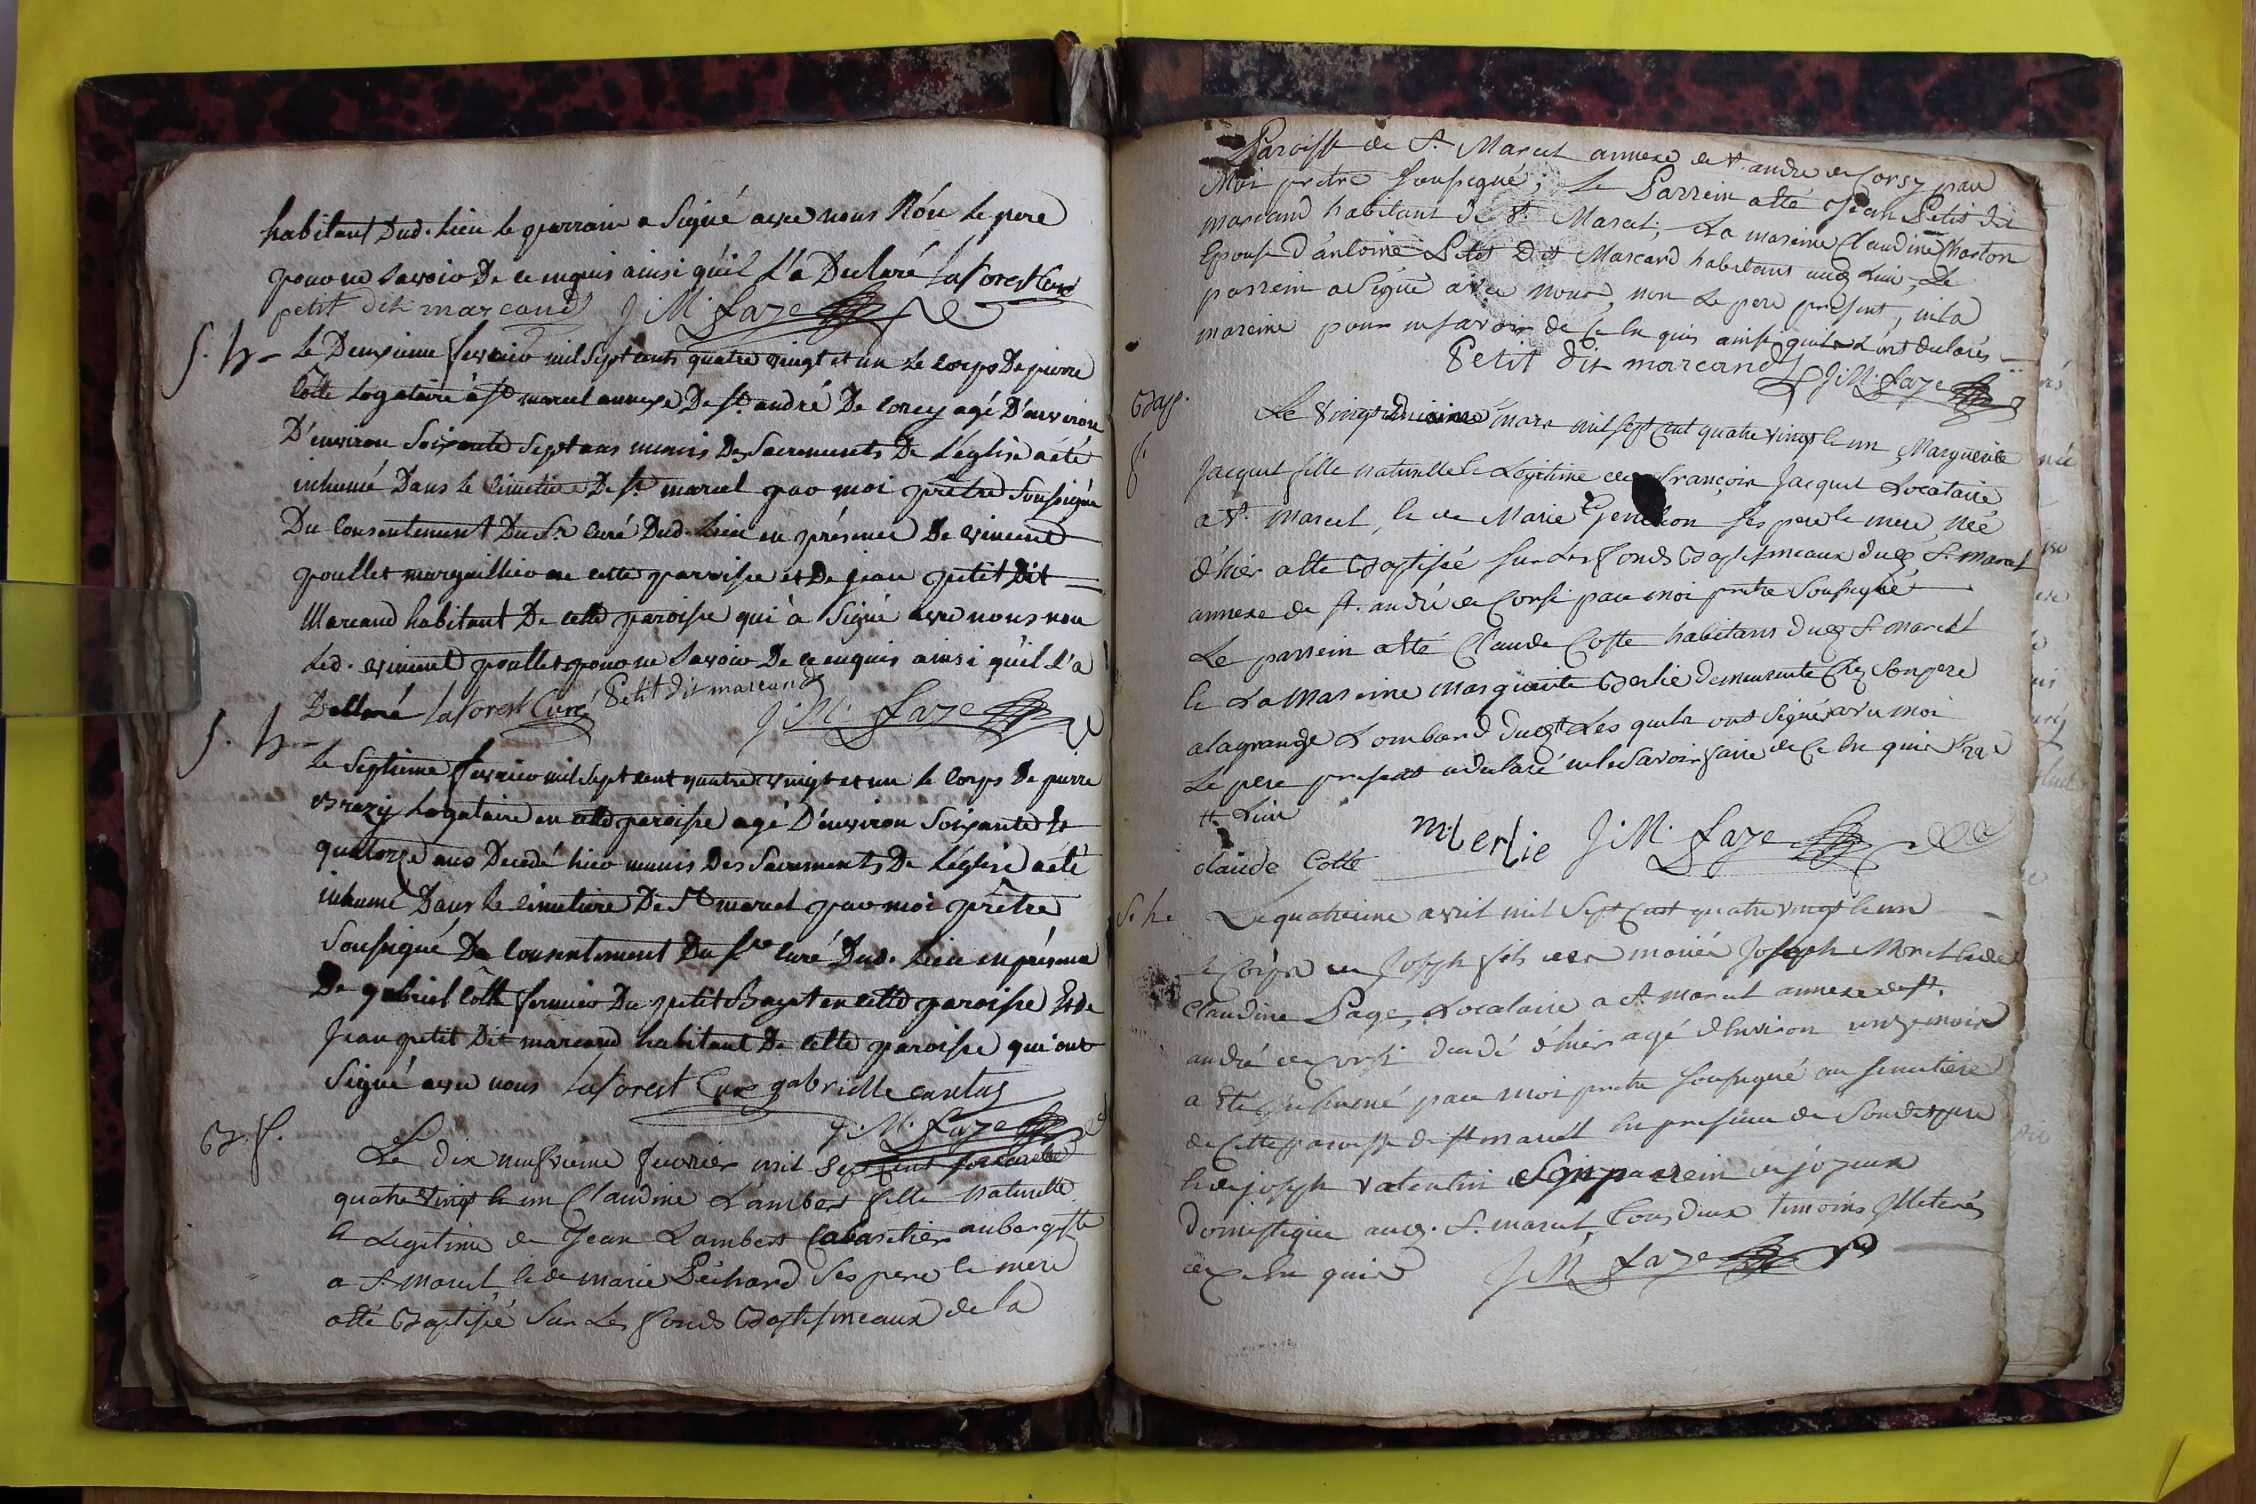 habitant Dud. lieu le parrain a Signé avec nous Nón le pere
pour ne savoir De ce enquis ainsi qu'il l'a Declaré Laforest Curé
petit dit marcand J. M. Faze
S. h - Le Deuxieme fevrier mil Sept cents quatre vingt et un le corps De pierre
Côtte Logataire à St marcel annexe De St andré De Corcy agé D'environ
D'environ Soixante Sept ans munis Des Sacrements De L'église a été
inhumé Dans le cimetiere De St marcel par moi prêtre Soussigné
Du consentement Du Sr curé Dud. Lieu en présence De vincent
poullet marguillier de cette parroisse et De jean petit Dit
Marcand habitant De cette paroisse qui a Signé avec nous non
Led. vincent poullet pour ne Savoir De ce enquis ainsi qu'il l'a
Declaré Laforest Curé Petit dit marcand
J. M. Faze
S. h - Le Septieme fevrier mil Sept cent quatre vingt et un le corps De pierre
Brazy Logataire en cette paroisse agé D'environ Soixante et
quatorze ans Decedé hier munis Des Sacrements De L'église a été
inhumé Dans le cimetiere De St marcel par moi prêtre
Soussigné De consentement Du Sr curé Dud. Lieu en présence
De gabriel Côtte fermier Du petit Bayet en cette paroisse Et de
Jean petit Dit marcand habitant De cette paroisse qui ont
Signé avec nous Laforest Curé gabrielle
J. M. Faze
B. f. Le dix neufvieme fevrier mil Sept Cent
quatre vingt le un Claudine Lambert fille Naturelle
le Legitime de Jean Lambert Cabaretier aubergiste
a St marcel, le de marie Péchard Ses pere le mere
atté Baptisée Sur Les fonds Baptismeaux de la
Paroisse de St Marcel annexe de St andre de Corsy par
Moi pretre Soussigné, Le Parrein atté Jean Petit dit
marcand habitant de St Marcel; La mareine Claudine Charton
Epouse d'antoine Petit Dit Marcand habitans aud Lieu, Le
parrein a Signé avec nous, non Le pere présent, ni la
mareine pour ne savoir de Ce En quis ainsi qu'ils L'ont déclarés
Petit dit marcand J. M. Faze
Bap.
f. Le vingt mars mil sept Cent quatre vingt le un Marguerite
Jacquet fille naturelle le Légitime de françois Jacquet Locataire
a St. Marcel, le de Marie Genethon Ses pere le mere, Née
d'hier atté Baptisée Sur Les fonds Baptismeaux dud St Marcel
annexe de St. andré de Corsi par moi pretre Soussigné
Le parrein atté Claude Cotte habitans dud St marcel
le La Mareine marguerite Berlie demeurante Chez Son pere
a lagrange Lombard dud tt Les quels ont Signés avec moi
Le pere present a declaré ne le Savoir faire de Ce En quis
tt Lieu
claude Cotte m: berlie J. M. Faze
S. h. Le quatrieme avril mil Sept Cent quatre vingt le un
le Corps de Joseph fils de Joseph Morel le de
Claudine Page, Locataire a St marcel annexe de St.
andré de Corsi décédé d'hier agé d'Environ unze mois
a Eté Inhumé par moi pretre Soussigné au Simetiere
de Cette paroisse de St marcel En presence de Sondit pere
le de joseph valentin Son parrein de joyeux
Domestique aud. St. marcel, Tous deux temoins Illeterés
de Ce En quis J. M. Faze